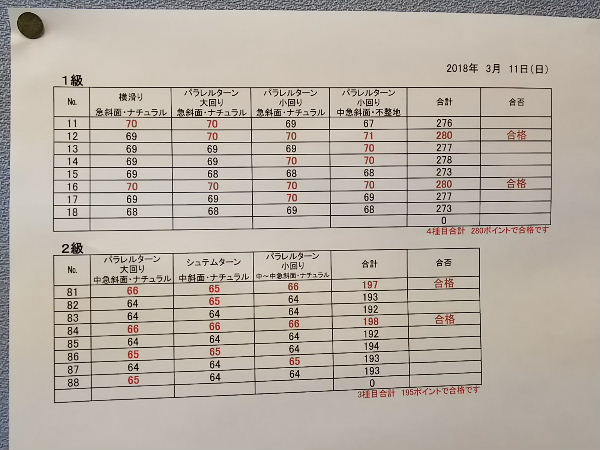 2018年 3月 11日(日)
1級
No. 横滑り 急斜面・ナチュラル パラレルターン 大回り 急斜面・ナチュラル パラレルターン 小回り 急斜面・ナチュラル パラレルターン 小回り 中急斜面・不整地 合計 合否
11 70 70 69 67 276
12 69 70 70 71 280 合格
13 69 69 69 70 277
14 69 69 70 70 278
15 69 68 68 68 273
16 70 70 70 70 280 合格
17 69 69 70 69 277
18 68 68 69 68 273
0
4種目合計 280ポイントで合格です
2級
No. パラレルターン 大回り 中急斜面・ナチュラル シュテムターン 中斜面・ナチュラル パラレルターン 小回り 中～中急斜面・ナチュラル 合計 合否
81 66 65 66 197 合格
82 64 65 64 193
83 64 64 64 192
84 66 66 66 198 合格
85 64 64 64 192
86 65 65 64 194
87 64 64 65 193
88 65 64 64 193
0
3種目合計 195ポイントで合格です